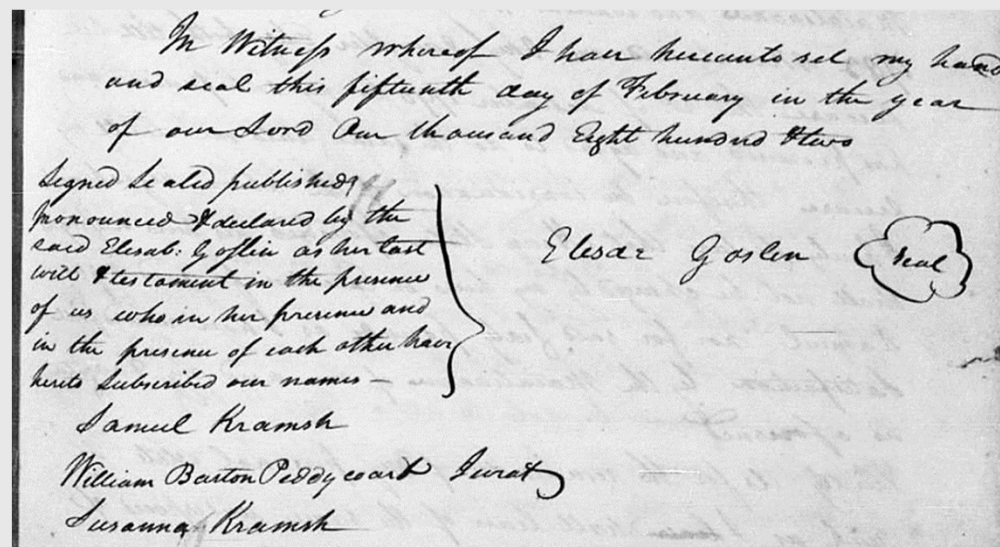 In Witness whereof I have hereunto set my hand
and seal this fifteenth day of February in the year
of our Lord One thousand Eight hundred & two
Signed Sealed published
pronounced & declared by the
said Elisab: Goslin as her last
will & testament in the presence
of us who in her presence and
in the presence of each other have
hereto Subscribed our names —
Elesae Goslen seal
Samuel Kramsh
William Barton Peddycoart Jurat
Susanna Kramsh